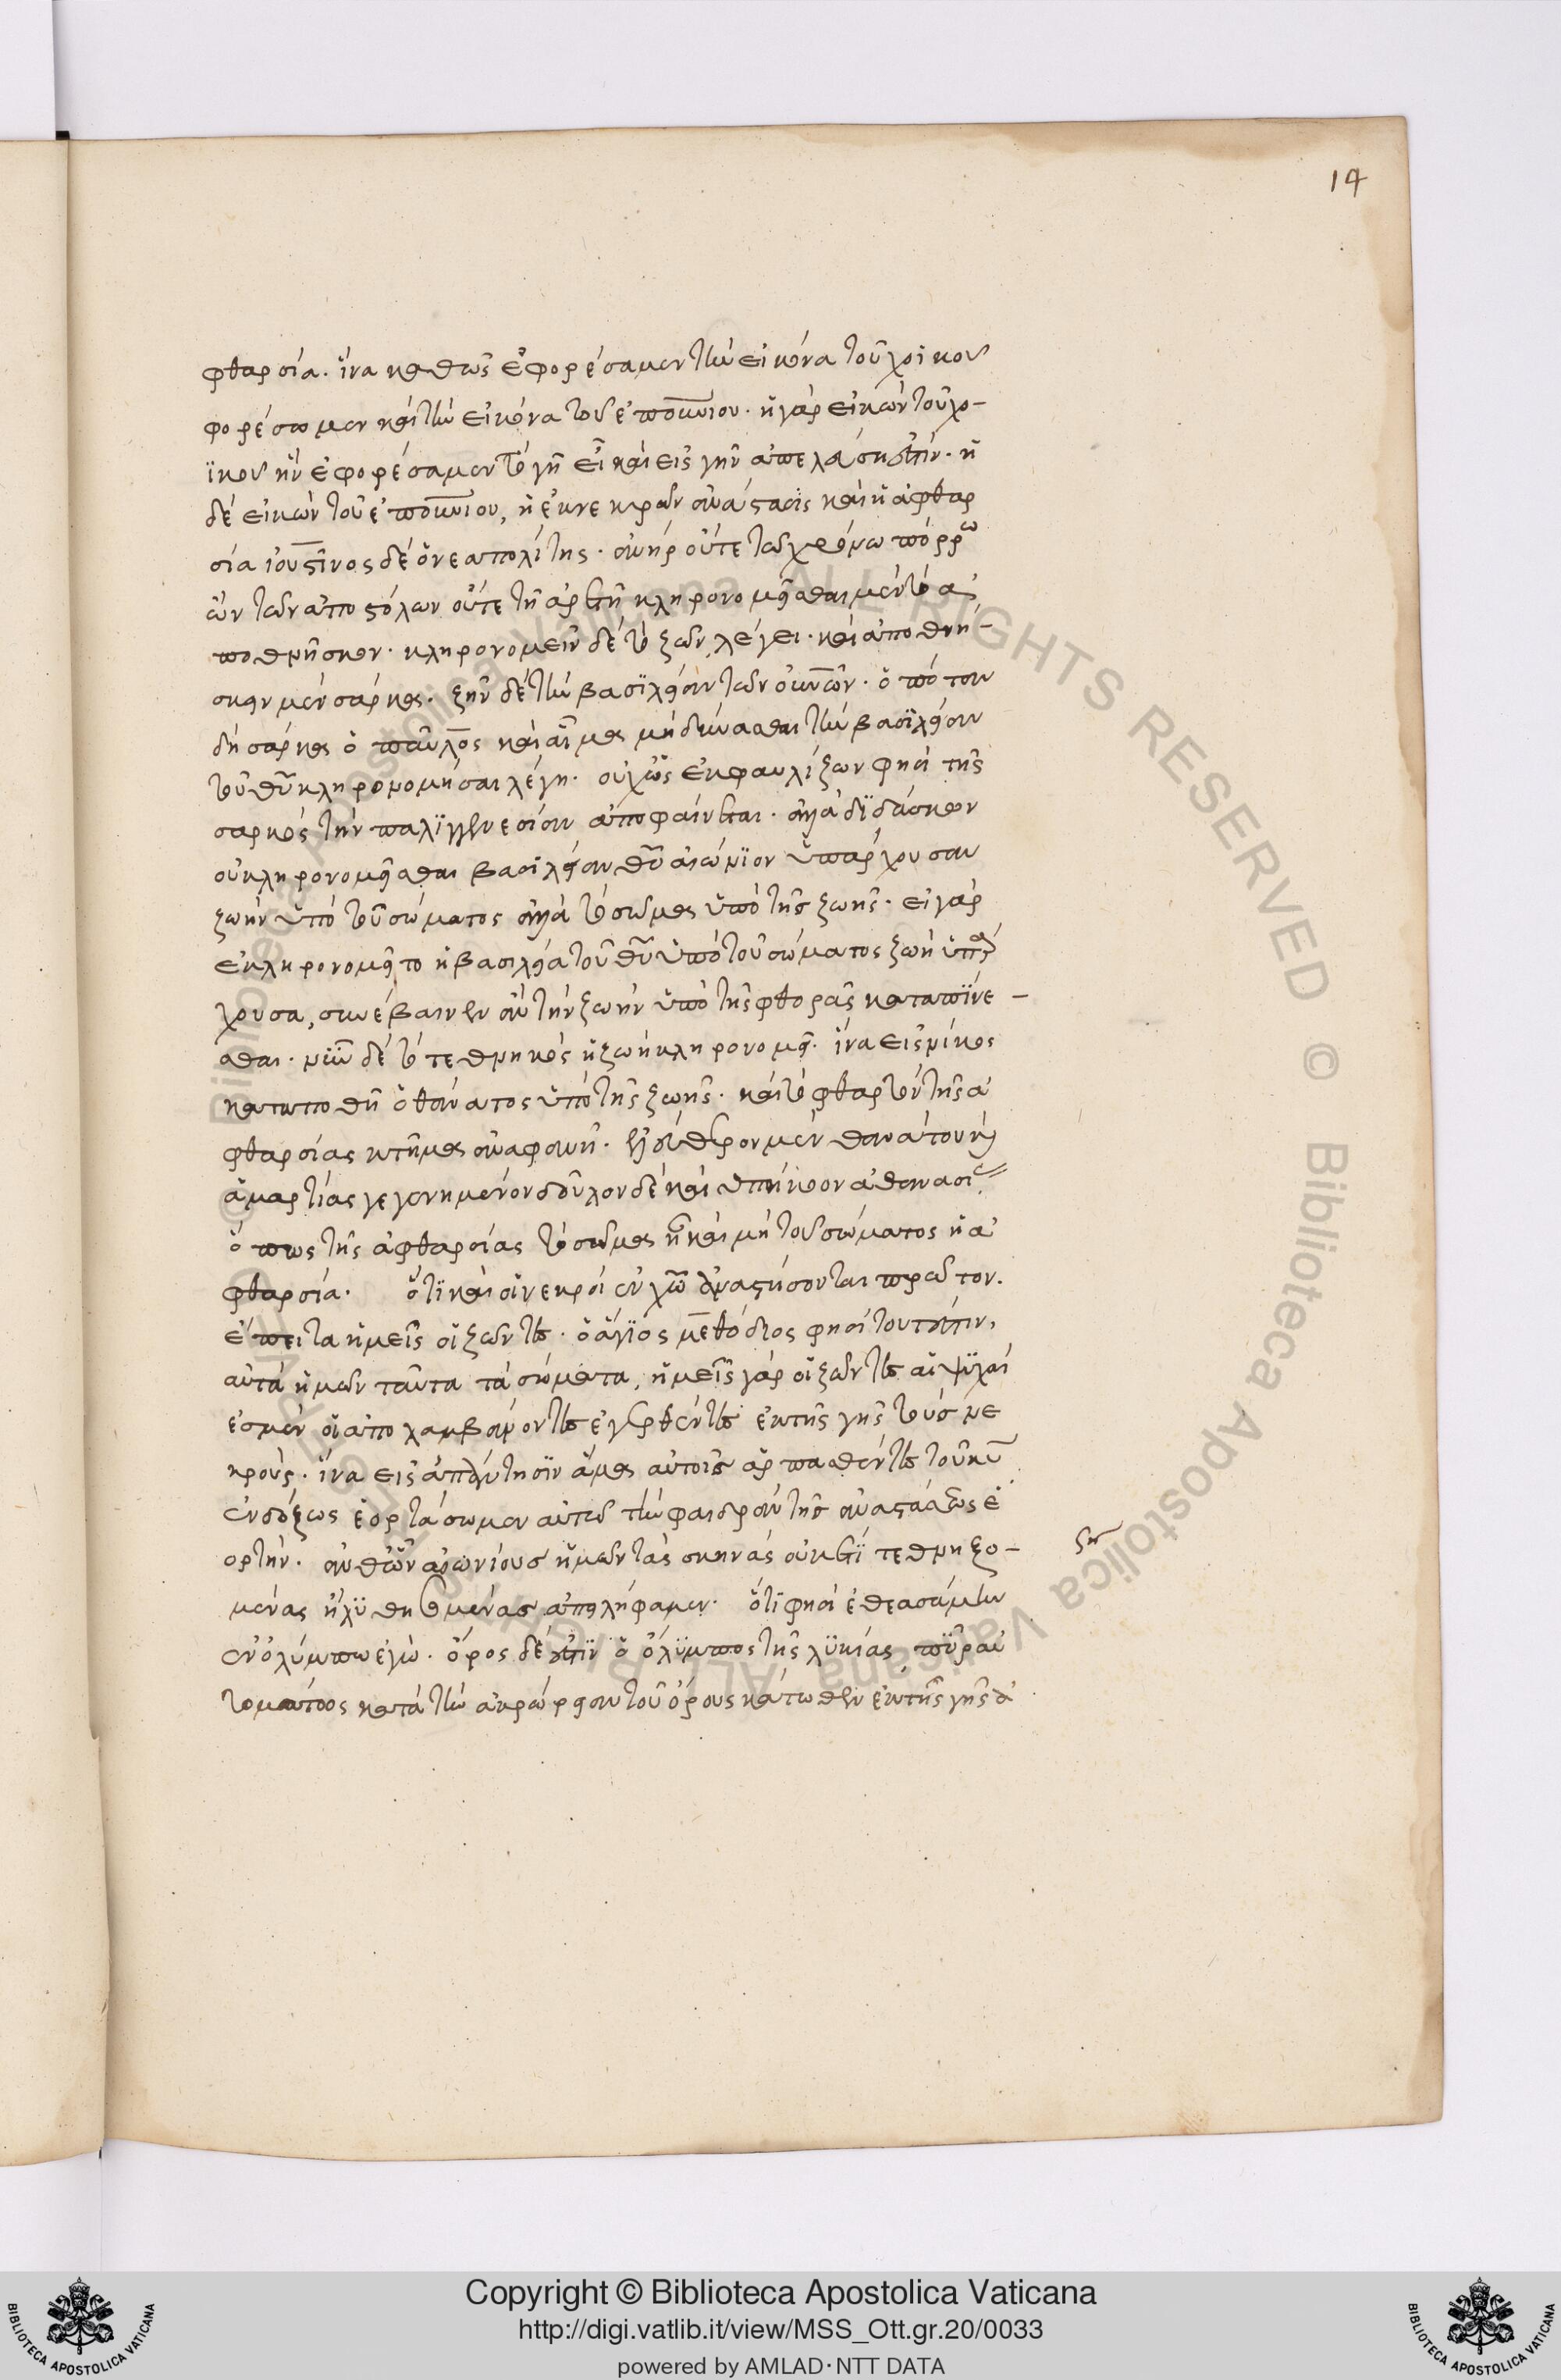 14
φθαρσία. ἵνα καθὼς ἐφορέσαμεν τὴν εἰκόνα τοῦ χοϊκοῦ
φορέσωμεν καὶ τὴν εἰκόνα τοῦ ἐπουνίου. ἡ γὰρ εἰκὼν τοῦ χο-
ϊκοῦ ἣν ἐφορέσαμεν τὸ γῆ εἶ καὶ εἰς γῆν ἀπελεύσῃ ἐστίν. ἡ
δὲ εἰκὼν τοῦ ἐπουνίου, ἡ ἐκ νεκρῶν ἀνάστασις καὶ ἡ ἀφθαρ
σία ἰουστῖνος δὲ ὁ νεαπολίτης. ἀνὴρ οὔτε τῶ χρόνω πόρρω
ὢν τῶν ἀποστόλων οὔτε τῆ ἀρετῆ κληρονομεῖσθαι μὲν τὸ ἀ
ποθνῆσκον. κληρονομεῖν δὲ τὸ ζῶν λέγει. καὶ ἀποθνή-
σκειν μὲν σάρκα. ζῆν δὲ τὴν βασιλείαν τῶν οὐνῶν. ὁπόταν
δὴ σάρκα ὁ παῦλος καὶ αἷμα μὴ δύνασθαι τὴν βασιλείαν
τοῦ θῦ κληρονομῆσαι λέγη. οὐχ ὡς ἐκφαυλίζων φησὶ τῆς
σαρκὸς τὴν παλιγγενεσίαν ἀποφαίνεται. ἀλλὰ διδάσκων
οὐ κληρονομεῖσθαι βασιλείαν θῦ αἰώνιον ὑπάρχουσαν
ζωὴν ὑπὸ τοῦ σώματος ἀλλὰ τὸ σῶμα ὑπὸ τῆς ζωῆς. εἰ γὰρ
ἐκληρονομεῖτο ἡ βασιλεία τοῦ θῦ ὑπὸ τοῦ σώματος ζωὴ ὑπάρ
χουσα, συνέβαινεν ἂν τὴν ζωὴν ὑπὸ τῆς φθορᾶς καταπίνε-
σθαι. νῦν δὲ τὸ τεθνηκὸς ἡ ζωὴ κληρονομεῖ. ἵνα εἰς νίκος
καταποθῆ ὁ θάνατος ὑπὸ τῆς ζωῆς. καὶ τὸ φθαρτὸν τῆς ἀ
φθαρσίας κτῆμα ἀναφανῆ. ἐλεύθερον μὲν θανάτου καὶ
ἁμαρτίας γεγενημένον δοῦλον δὲ καὶ ὑπήκοον ἀθανασί
ὅπως τῆς ἀφθαρσίας τὸ σῶμα ἦ καὶ μὴ τοῦ σώματος ἡ ἀ
φθαρσία. ὅτι καὶ οἱ νεκροὶ ἐν χῶ ἀναστήσονται πρῶτον.
ἔπειτα ἡμεῖς οἱ ζῶντες. ὁ ἅγιος μεθόδιος φησὶ τουτέστιν,
αὐτὰ ἡμῶν ταῦτα τὰ σώματα, ἡμεῖς γὰρ οἱ ζῶντες αἱ ψυχαί
ἐσμεν οἱ ἀπολαμβάνοντες ἐγερθέντες ἐκ τῆς γῆς τοὺς νε
κρούς. ἵνα εἰς ἀπάντησιν ἅμα αὐτοῖς ἁρπαθέντες τοῦ κῦ
ἐνδόξως ἑορτάσωμεν αὐτῶ τὴν φαιδρὰν τῆς ἀναστάσεως ἑ
ορτήν. ἀνθ' ὧν αἰωνίους ἡμῶν τὰς σκηνὰς οὐκέτι τεθνηξο-
μένας ἢ λυθησομένας ἀπειλήφαμεν. ὅτι φησὶ ἐθεασάμην
ἐν ὀλύμπω ἐγώ. ὄρος δέ ἐστιν ὁ ὄλυμπος τῆς λυκίας, πῦρ αὐ
τομάτως κατὰ τὴν ἀκρώρειαν τοῦ ὄρους κάτωθεν ἐκ τῆς γῆς ἀ
Copyright © Biblioteca Apostolica Vaticana
http://digi.vatlib.it/view/MSS_Ott.gr.20/0033
powered by AMLAD·NTT DATA